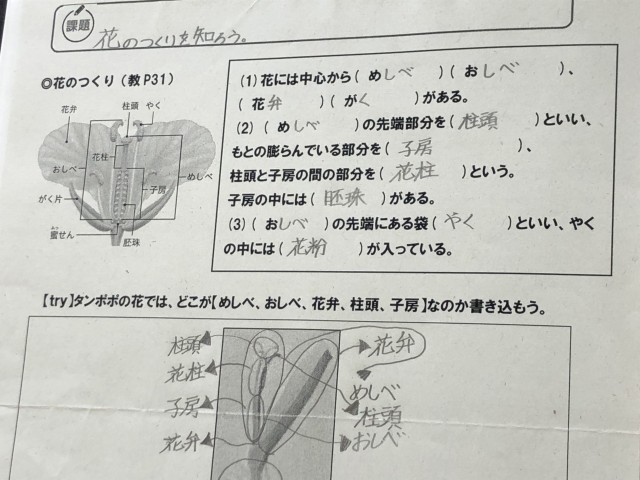 課題
花のつくりを知ろう。
◎花のつくり(教P31)
柱頭 やく
花弁
花柱
おしべ
めしべ
子房
がく片
蜜せん
胚珠
(1)花には中心から(めしべ)(おしべ)、
(花弁)(がく)がある。
(2)(めしべ)の先端部分を(柱頭)といい、
もとの膨らんでいる部分を(子房)、
柱頭と子房の間の部分を(花柱)という。
子房の中には(胚珠)がある。
(3)(おしべ)の先端にある袋(やく)といい、やく
の中には(花粉)が入っている。
【try】タンポポの花では、どこが【めしべ、おしべ、花弁、柱頭、子房】なのか書き込もう。
柱頭
花柱
子房
花弁
花弁
めしべ
柱頭
おしべ